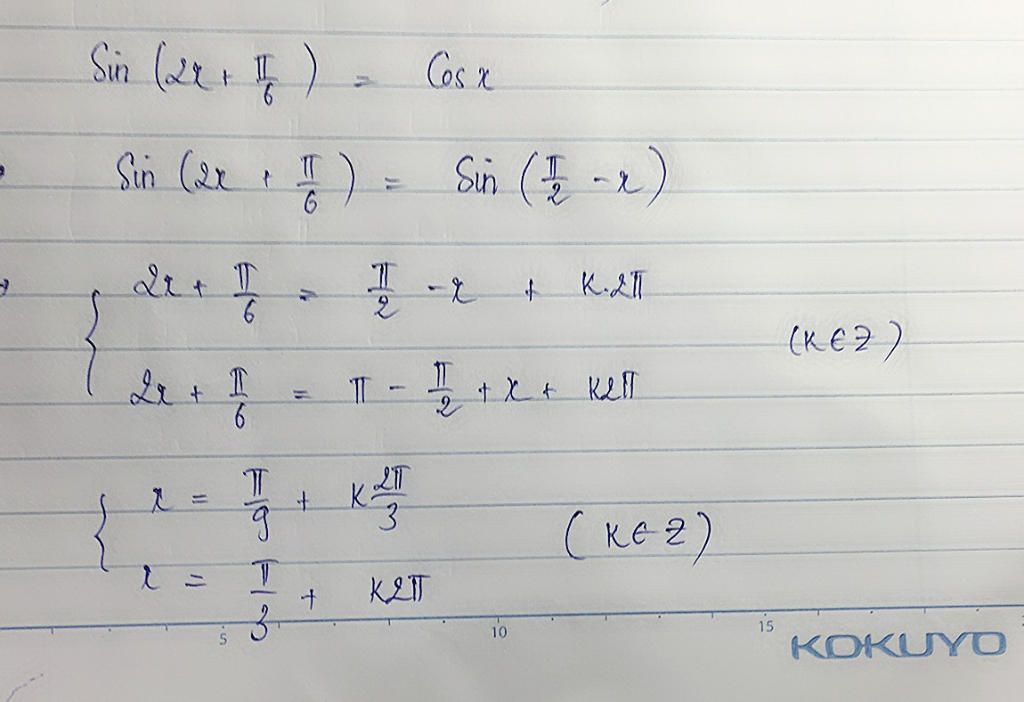 Sin (2x + π/6) = Cos x
Sin (2x + π/6) = Sin (π/2 - x)
{ 2x + π/6 = π/2 - x + K.2π
(K ∈ Z)
2x + π/6 = π - π/2 + x + K2π
{ x = π/9 + K 2π/3
(K ∈ Z)
x = π/3 + K2π
5 10 15
KOKUYO